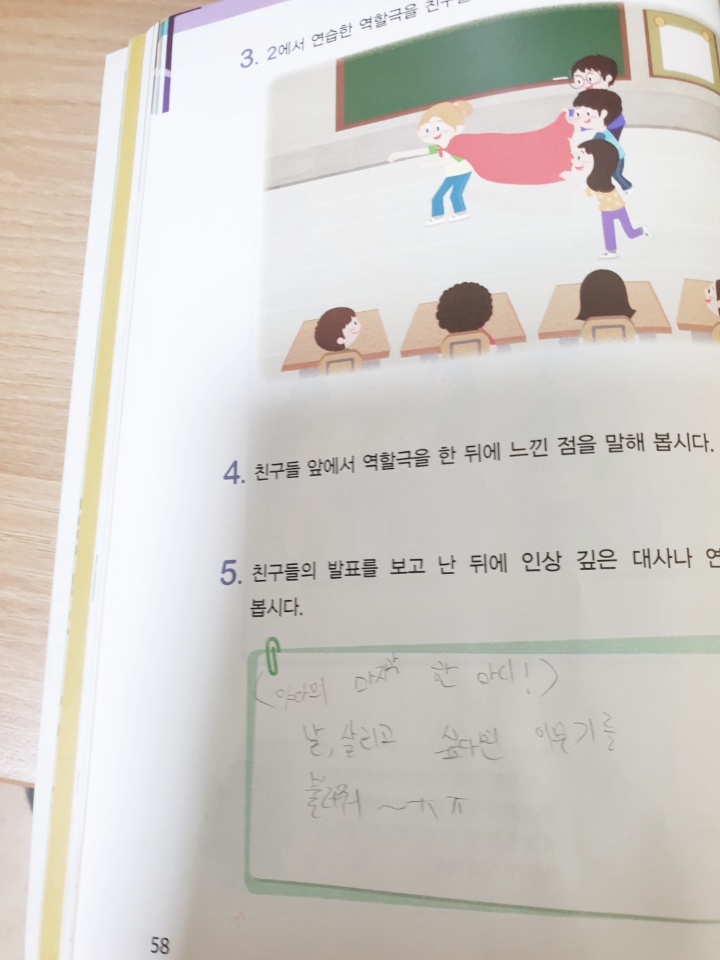 3. 2에서 연습한 역할극을 친구들
4. 친구들 앞에서 역할극을 한 뒤에 느낀 점을 말해 봅시다.
5. 친구들의 발표를 보고 난 뒤에 인상 깊은 대사나 연
봅시다.
마지막 한 마디!)
날, 살리고 싶다면 이무기를
불러줘 ~ㅠㅠ
58